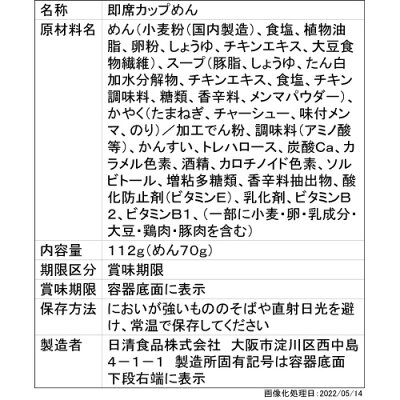 名称 即席カップめん
原材料名 めん(小麦粉(国内製造)、食塩、植物油
脂、卵粉、しょうゆ、チキンエキス、大豆食
物繊維)、スープ(豚脂、しょうゆ、たん白
加水分解物、チキンエキス、食塩、チキン
調味料、糖類、香辛料、メンマパウダー)、
かやく(たまねぎ、チャーシュー、味付メン
マ、のり)/加工でん粉、調味料(アミノ酸
等)、かんすい、トレハロース、炭酸Ca、カ
ラメル色素、酒精、カロチノイド色素、ソル
ビトール、増粘多糖類、香辛料抽出物、酸
化防止剤(ビタミンE)、乳化剤、ビタミンB
2、ビタミンB1、(一部に小麦・卵・乳成分・
大豆・鶏肉・豚肉を含む)
内容量 112g(めん70g)
期限区分 賞味期限
賞味期限 容器底面に表示
保存方法 においが強いもののそばや直射日光を避
け、常温で保存してください
製造者 日清食品株式会社 大阪市淀川区西中島
4-1-1 製造所固有記号は容器底面
下段右端に表示
画像化処理日:2022/05/14